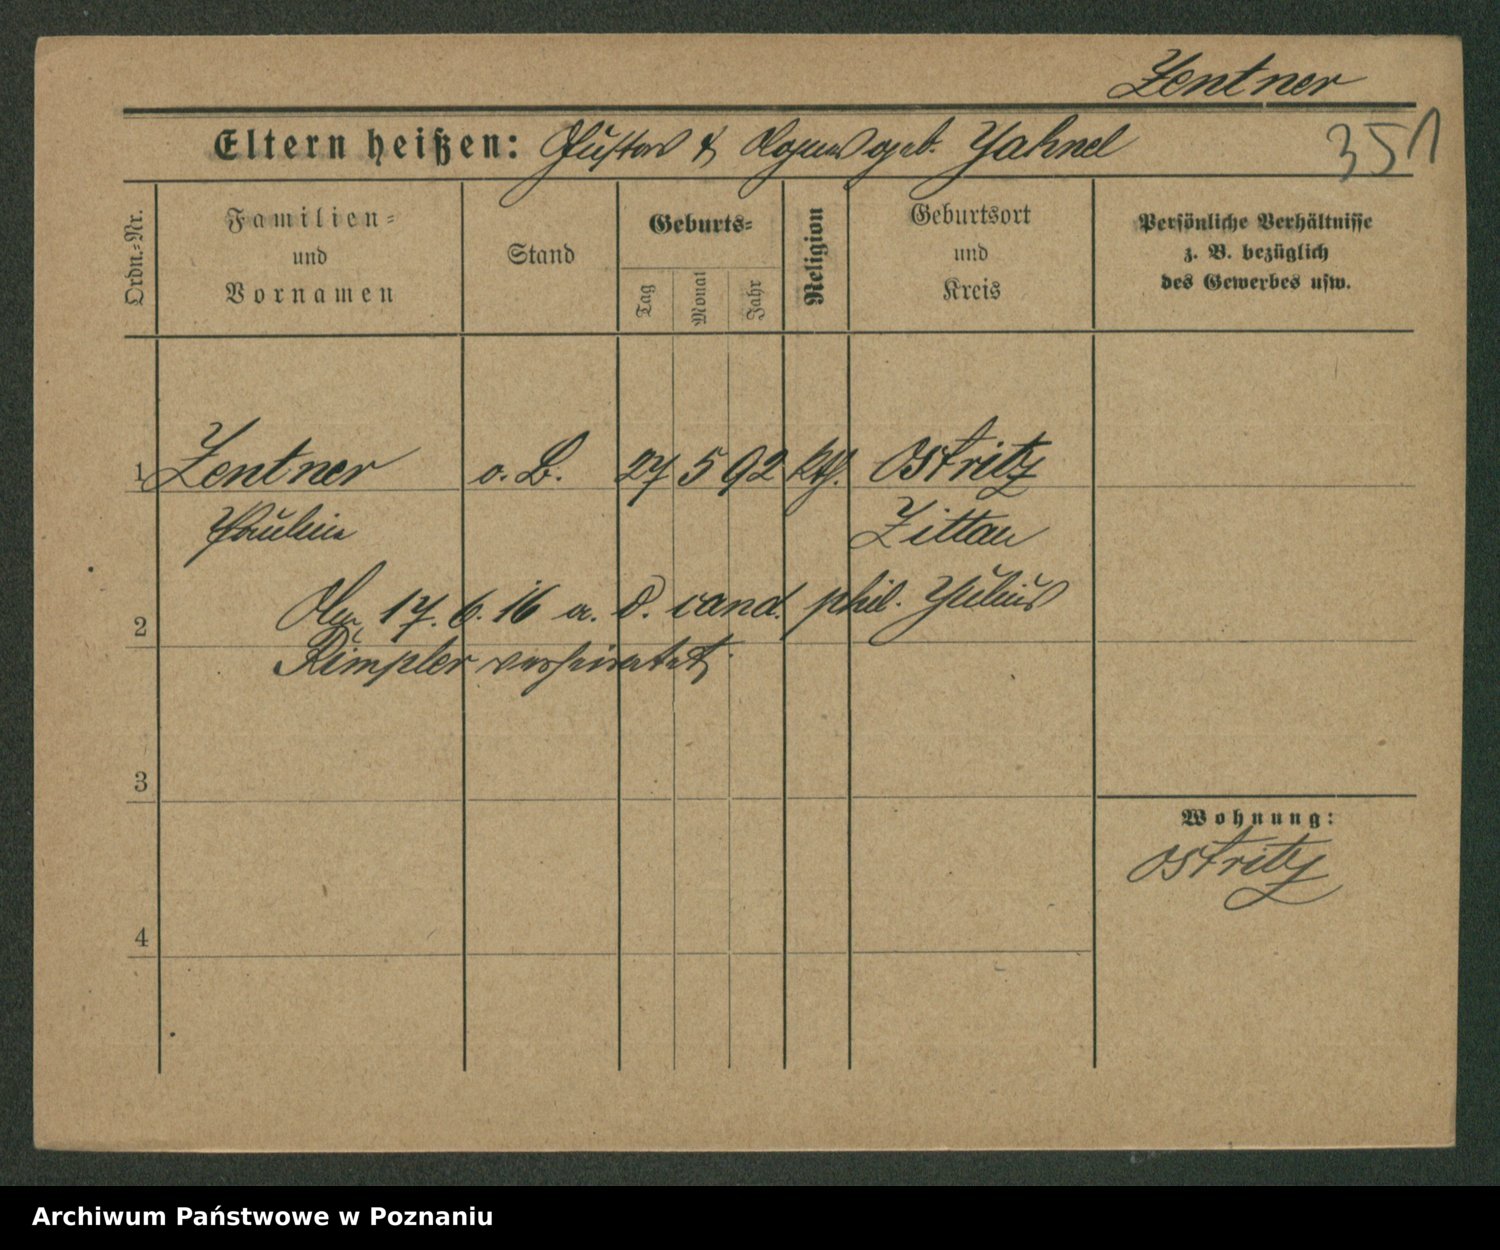 Zentner
Eltern heißen: Gustav & Agnes geb. Jahnel
351
Ordn.=Nr.
Familien=
und
Vornamen
Stand
Geburts=
Tag
Monat
Jahr
Religion
Geburtsort
und
Kreis
Persönliche Verhältnisse
z. B. bezüglich
des Gewerbes usw.
1 Zentner o. B. 27 5 92 kth. Ostritz
Pauline Zittau
17. 6. 16 a. d. cand. phil. Julius
2
Rimpler verheiratet.
3
Wohnung:
Ostritz
4
Archiwum Państwowe w Poznaniu